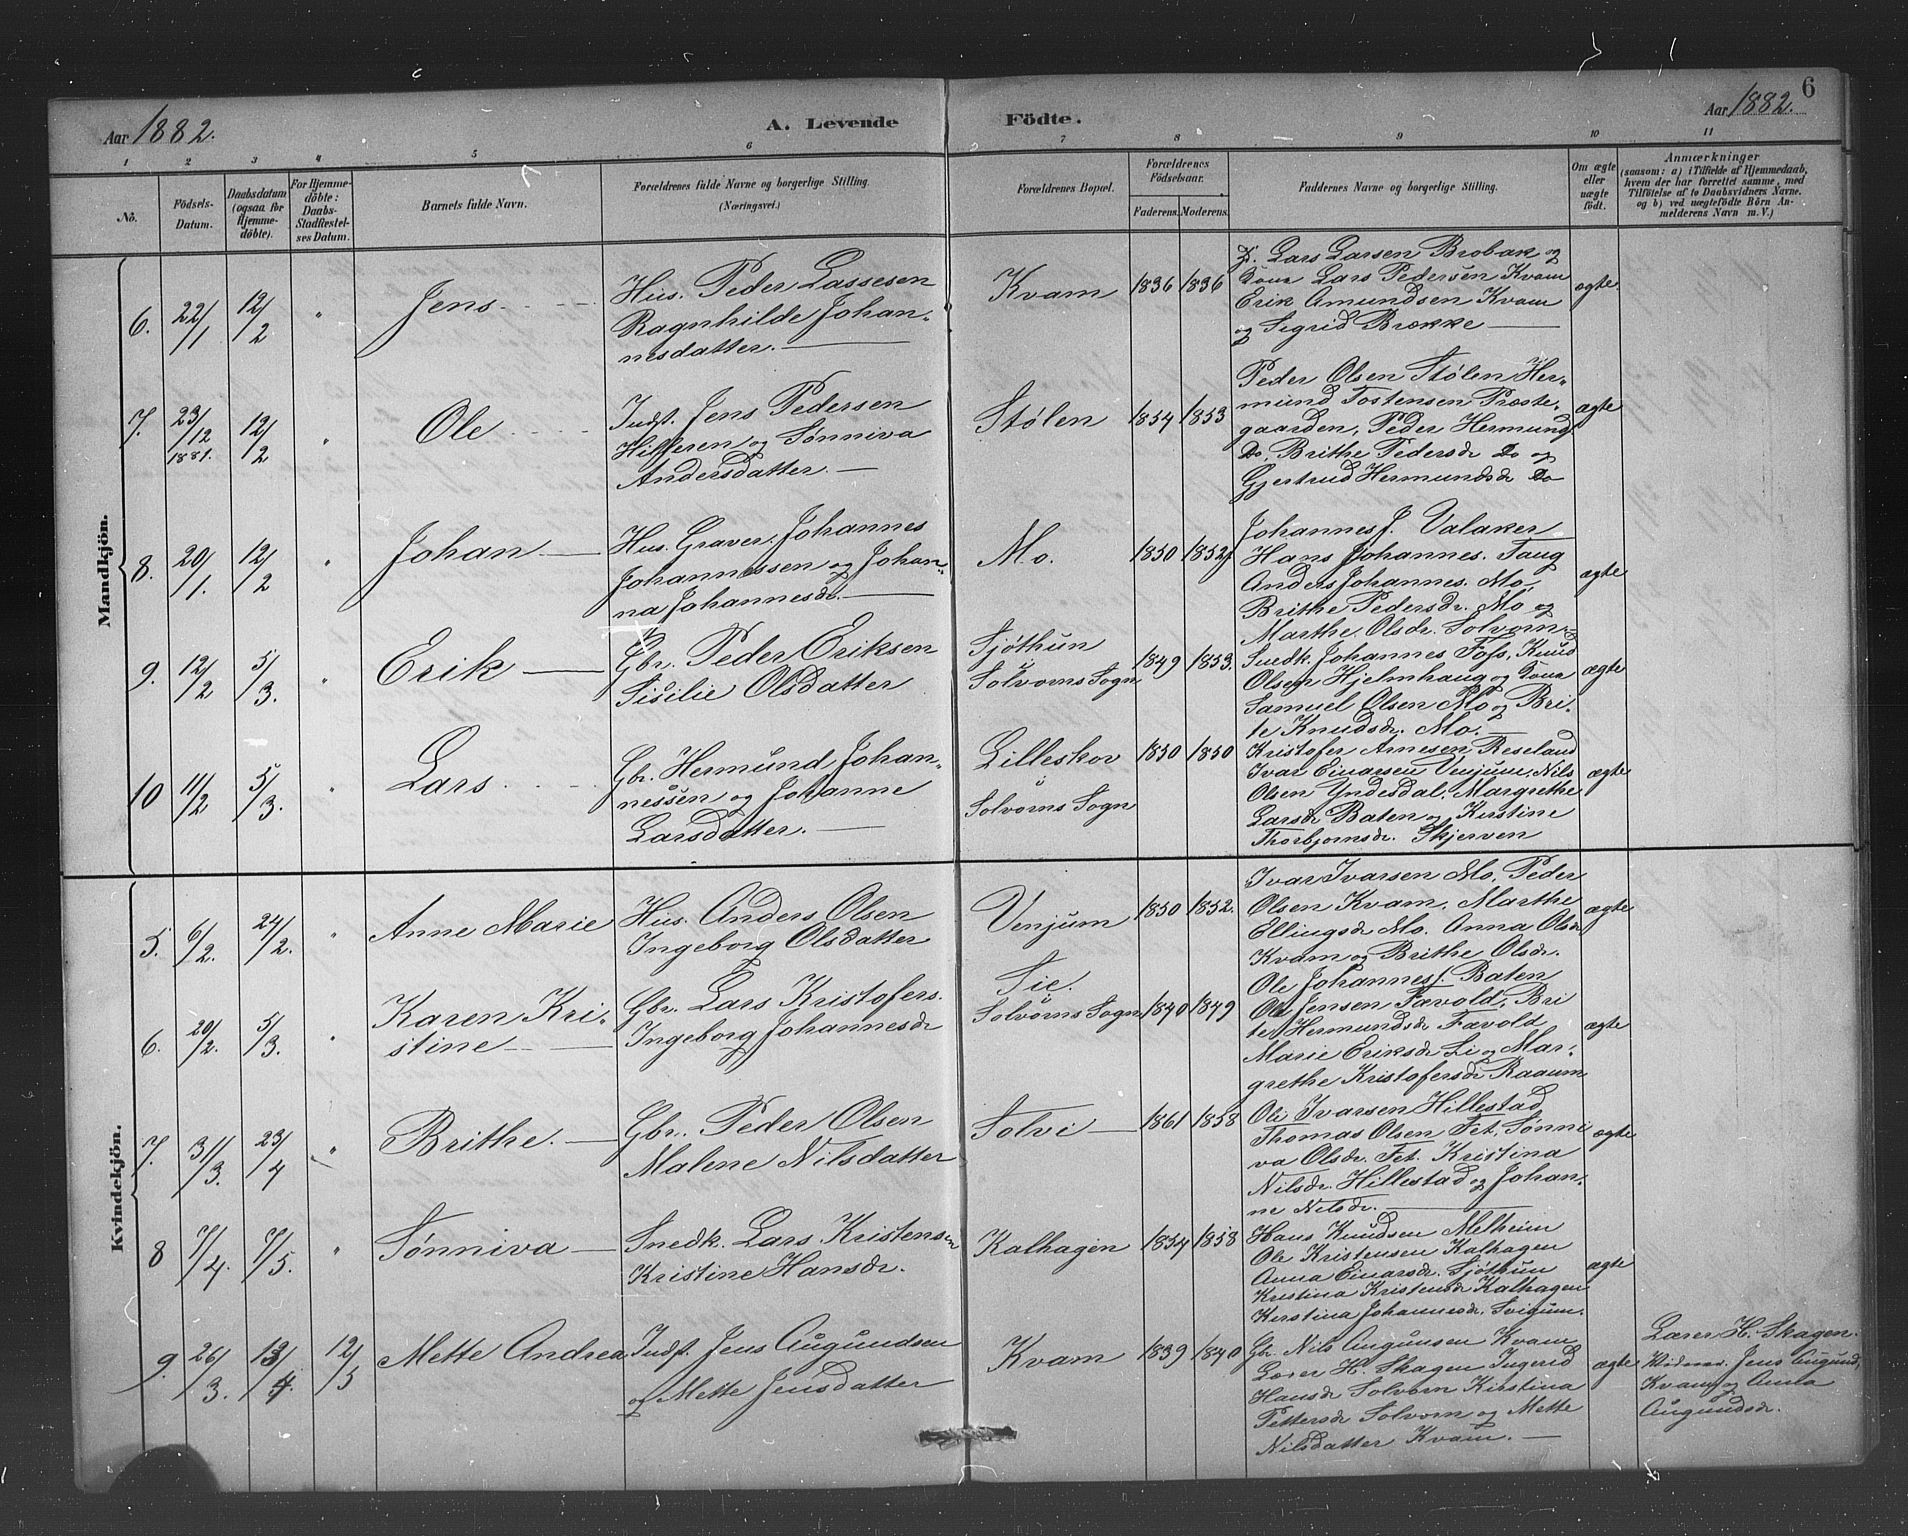 6
Aar 1882.
A. Levende Födte.
Aar 1882.
1 2 3 4 5 6 7 8 9 10 11
No.
Födsels-Datum.
Daabsdatum (ogsaa for Hjemmedöbte).
For Hjemmedöbte: Daabs-Stadfestelses Datum.
Barnets fulde Navn.
Forældrenes fulde Navne og borgerlige Stilling. (Næringsvei.)
Forældrenes Bopæl.
Forældrenes Födselsaar.
Faderens. Moderens.
Faddernes Navne og borgerlige Stilling.
Om ægte eller uægte födt.
Anmærkninger
(saasom: a) i Tilfælde af Hjemmedaab, hvem der har forrettet samme, med Tilföielse af to Daabsvidners Navne. og b) ved uægtefödte Börn Anmelderens Navn m. V.)
Mandkjön.
6. 22/1 12/2 " Jens
Hus. Peder Lassesen
Ragnhilde Johan-
nesdatter.
Kvam 1836 1836
Lars Larsen Brobak og
Kone Lars Pedersen Kvam
Erik Amundsen Kvam
og Sigrid Brække
ægte.
7. 23/12 1881. 12/2 " Ole
Indst. Jens Pedersen
Hilleren og Sønniva
Andersdatter.
Stølen 1854 1853
Peder Olsen Stølen Her-
mund Tostensen Præste-
gaarden, Peder Hermunds.
Do, Brithe Pedersdr Do og
Gjertrud Hermundsdr Do
ægte
8. 20/1. 12/2 " Johan
Hus. Graver. Johannes
Johannessen og Johan-
na Johannesdr.
Mo. 1850 1852
Johannes J. Valaker
Hans Johannes. Taug
Anders Johannes. Mo,
Brithe Pedersdr. Mo og
Marthe Olsdr. Solvorn
ægte
9. 12/2 5/3. " Erik
Gbr. Peder Eriksen
Sisilie Olsdatter
Sjøthun
Solvorns Sogn
1849 1853.
Snedk. Johannes Foss, Knud
Olsen Hjelmhaug og Kone
Samuel Olsen Mo og Bri-
te Knudsdr. Mo.
ægte
10 11/2 5/3. " Lars
Gbr. Hermund Johan-
nessen og Johanne
Larsdatter.
Lilleskov
Solvorns Sogn
1850 1850
Kristofer Arnesen Reseland
Ivar Einarsen Venjum, Nils
Olsen Yndesdal, Margrethe
Larsdr Baten og Kirstine
Thorbjørnsdr. Skjerven
ægte
Kvindekjön.
5. 6/2. 24/2. " Anne Marie
Hus. Anders Olsen
Ingeborg Olsdatter
Venjum 1850 1852.
Ivar Ivarsen Mo, Peder
Olsen Kvam, Marthe
Ellingsdr Mo. Anna Olsdr
Kvam og Brithe Olsdr.
ægte
6. 20/2. 5/3. " Karen Kri-
stine
Gbr. Lars Kristofers.
Ingeborg Johannesdr
Sie.
Solvorns Sogn
1840 1849
Ole Johannes. Baten
Ole Jensen Fævold, Bri
te Hermundsdr Fævold
Marie Eriksdr Li og Mar-
grethe Kristofersdr Raaum
ægte
7. 31/3. 23/4 " Brithe.
Gbr. Peder Olsen
Malene Nilsdatter
Solvi 1861 1858
Ole Ivarsen Hillestad
Thomas Olsen Fet, Sønni
va Olsdr. Fet. Kristina
Nilsdr. Hillestad og Johan-
ne Nilsdr.
ægte
8 7/4. 7/5. " Sønniva
Snedk. Lars Kristensen
Kristine Hansdr.
Kalhagen 1854 1858
Hans Knudsen Melheim
Ole Kristensen Kalhagen
Anna Einarsdr. Sjøthun
Kristina Kristensdr Kalhagen
Kirstina Johannesdr. Svigum.
ægte
9. 26/3. 13/4. 12/5 Mette Andrea
Indst. Jens Augundsen
og Mette Jensdatter
Kvam 1839 1840
Gbr. Nils Augunsen Kvam
Lærer H. Skagen Ingerid
Hansdr Solvorn Kirstina
Pettersdr Solvorn og Mette
Nilsdatter Kvam.
ægte
Lærer H. Skagen.
Jens Augund,
Kvam og Anna
Augundsdr.